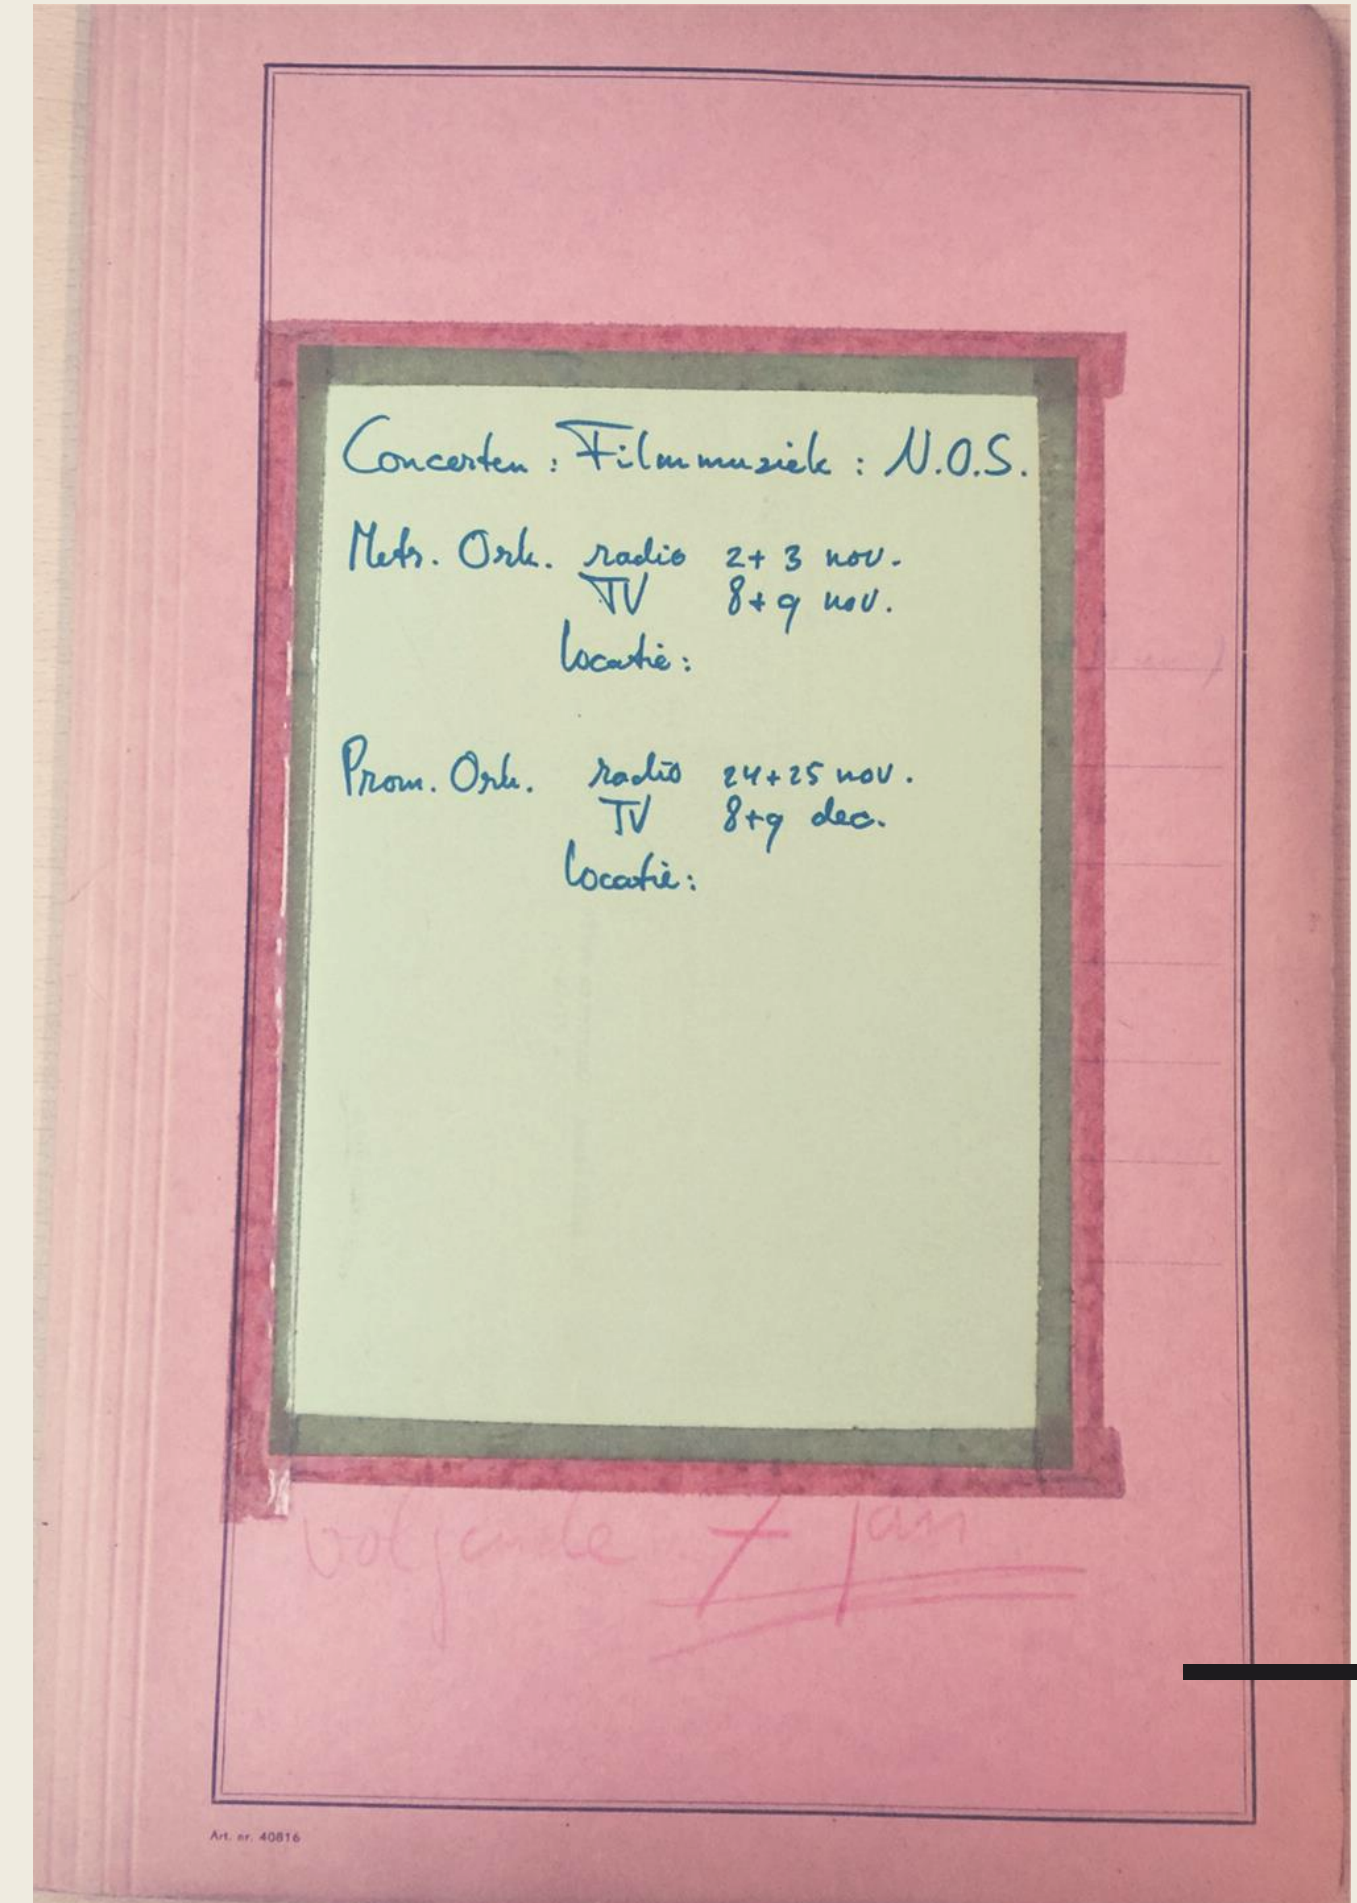 Concerten : Filmmuziek : N.O.S.
Metr. Ork. radio 2+3 nov.
TV 8+9 nov.
locatie:
Prom. Ork. radio 24+25 nov.
TV 8+9 dec.
locatie:
volgende 7 jan
Art. nr. 40816